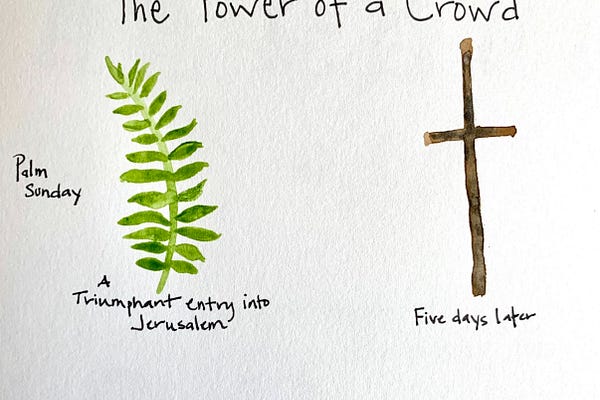 The Power of a Crowd
Palm
Sunday
A
Triumphant entry into
Jerusalem
Five days later